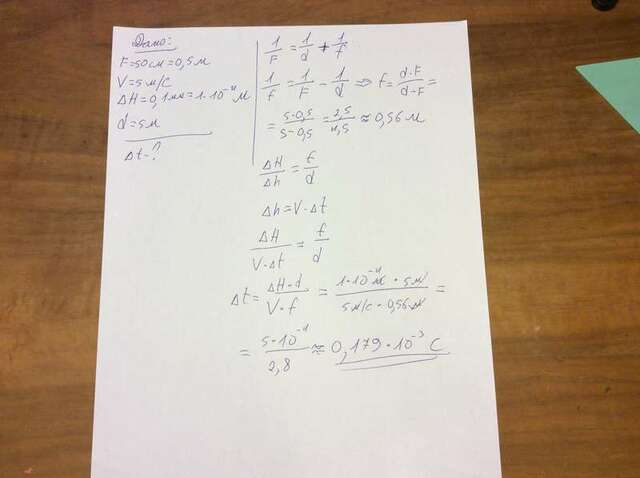 Дано:
F=50см=0,5м
V=5м/с
ΔH=0,1мм=1·10⁻⁴м
d=5м
Δt-?
1/F = 1/d + 1/f
1/f = 1/F - 1/d ⇒ f = d·F/d-F =
= 5·0,5/5-0,5 = 2,5/4,5 ≈ 0,56м
ΔH/Δh = f/d
Δh=V·Δt
ΔH/V·Δt = f/d
Δt = ΔH·d/V·f = 1·10⁻⁴м · 5м/5м/с · 0,56м =
= 5·10⁻⁴/2,8 ≈ 0,179·10⁻³ с